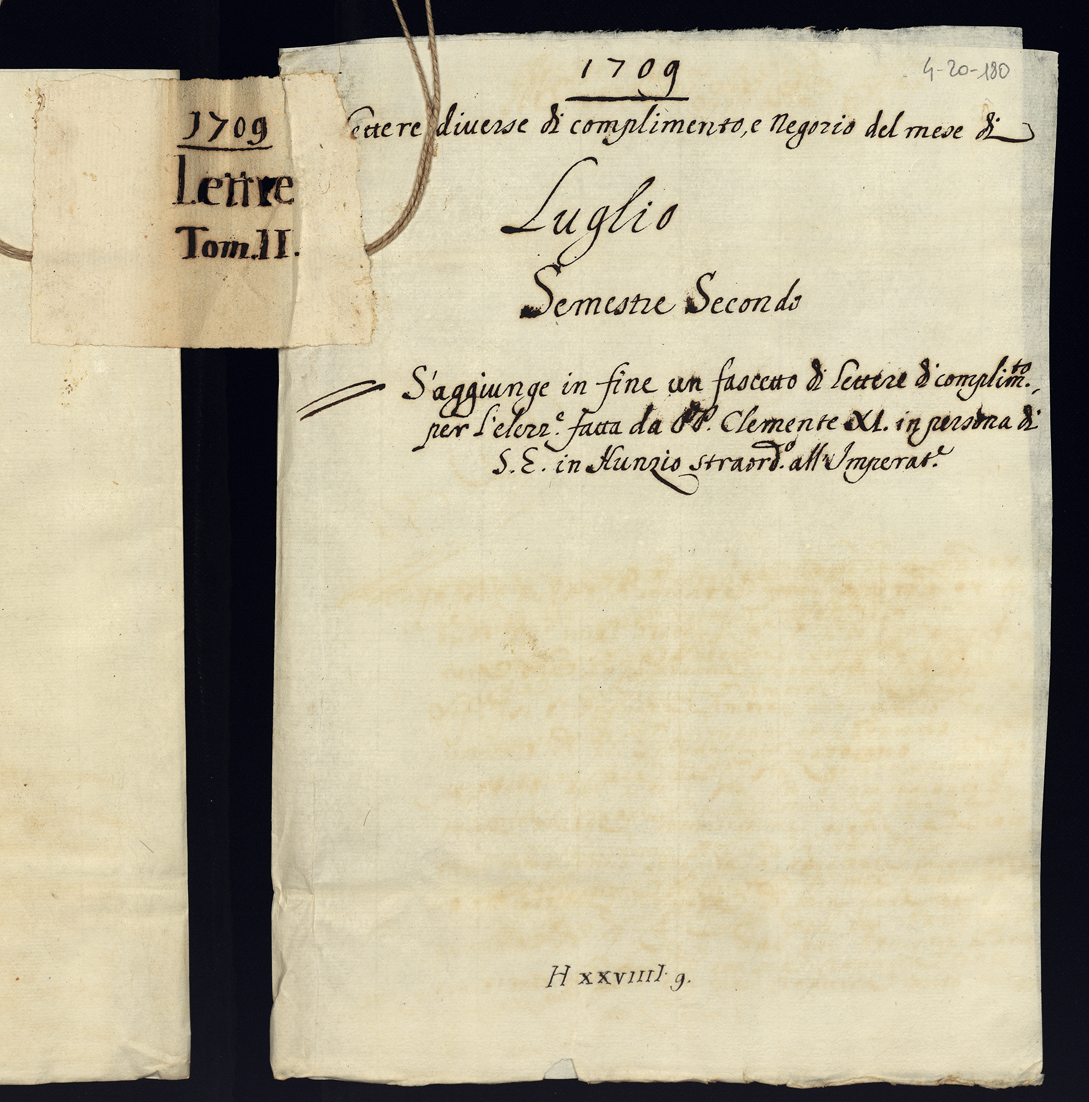 1709
Lettre
Tom.II.
4-20-180
1709
Lettere diverse di complimento, e Negozio del mese di
Luglio
Semestre Secondo
S'aggiunge in fine un fascetto di lettere di complim.to,
per l'elezz.e fatta da PP. Clemente XI. in persona di
S.E. in Nunzio straord.o all'Imperat.e
H xxviiiI. g.